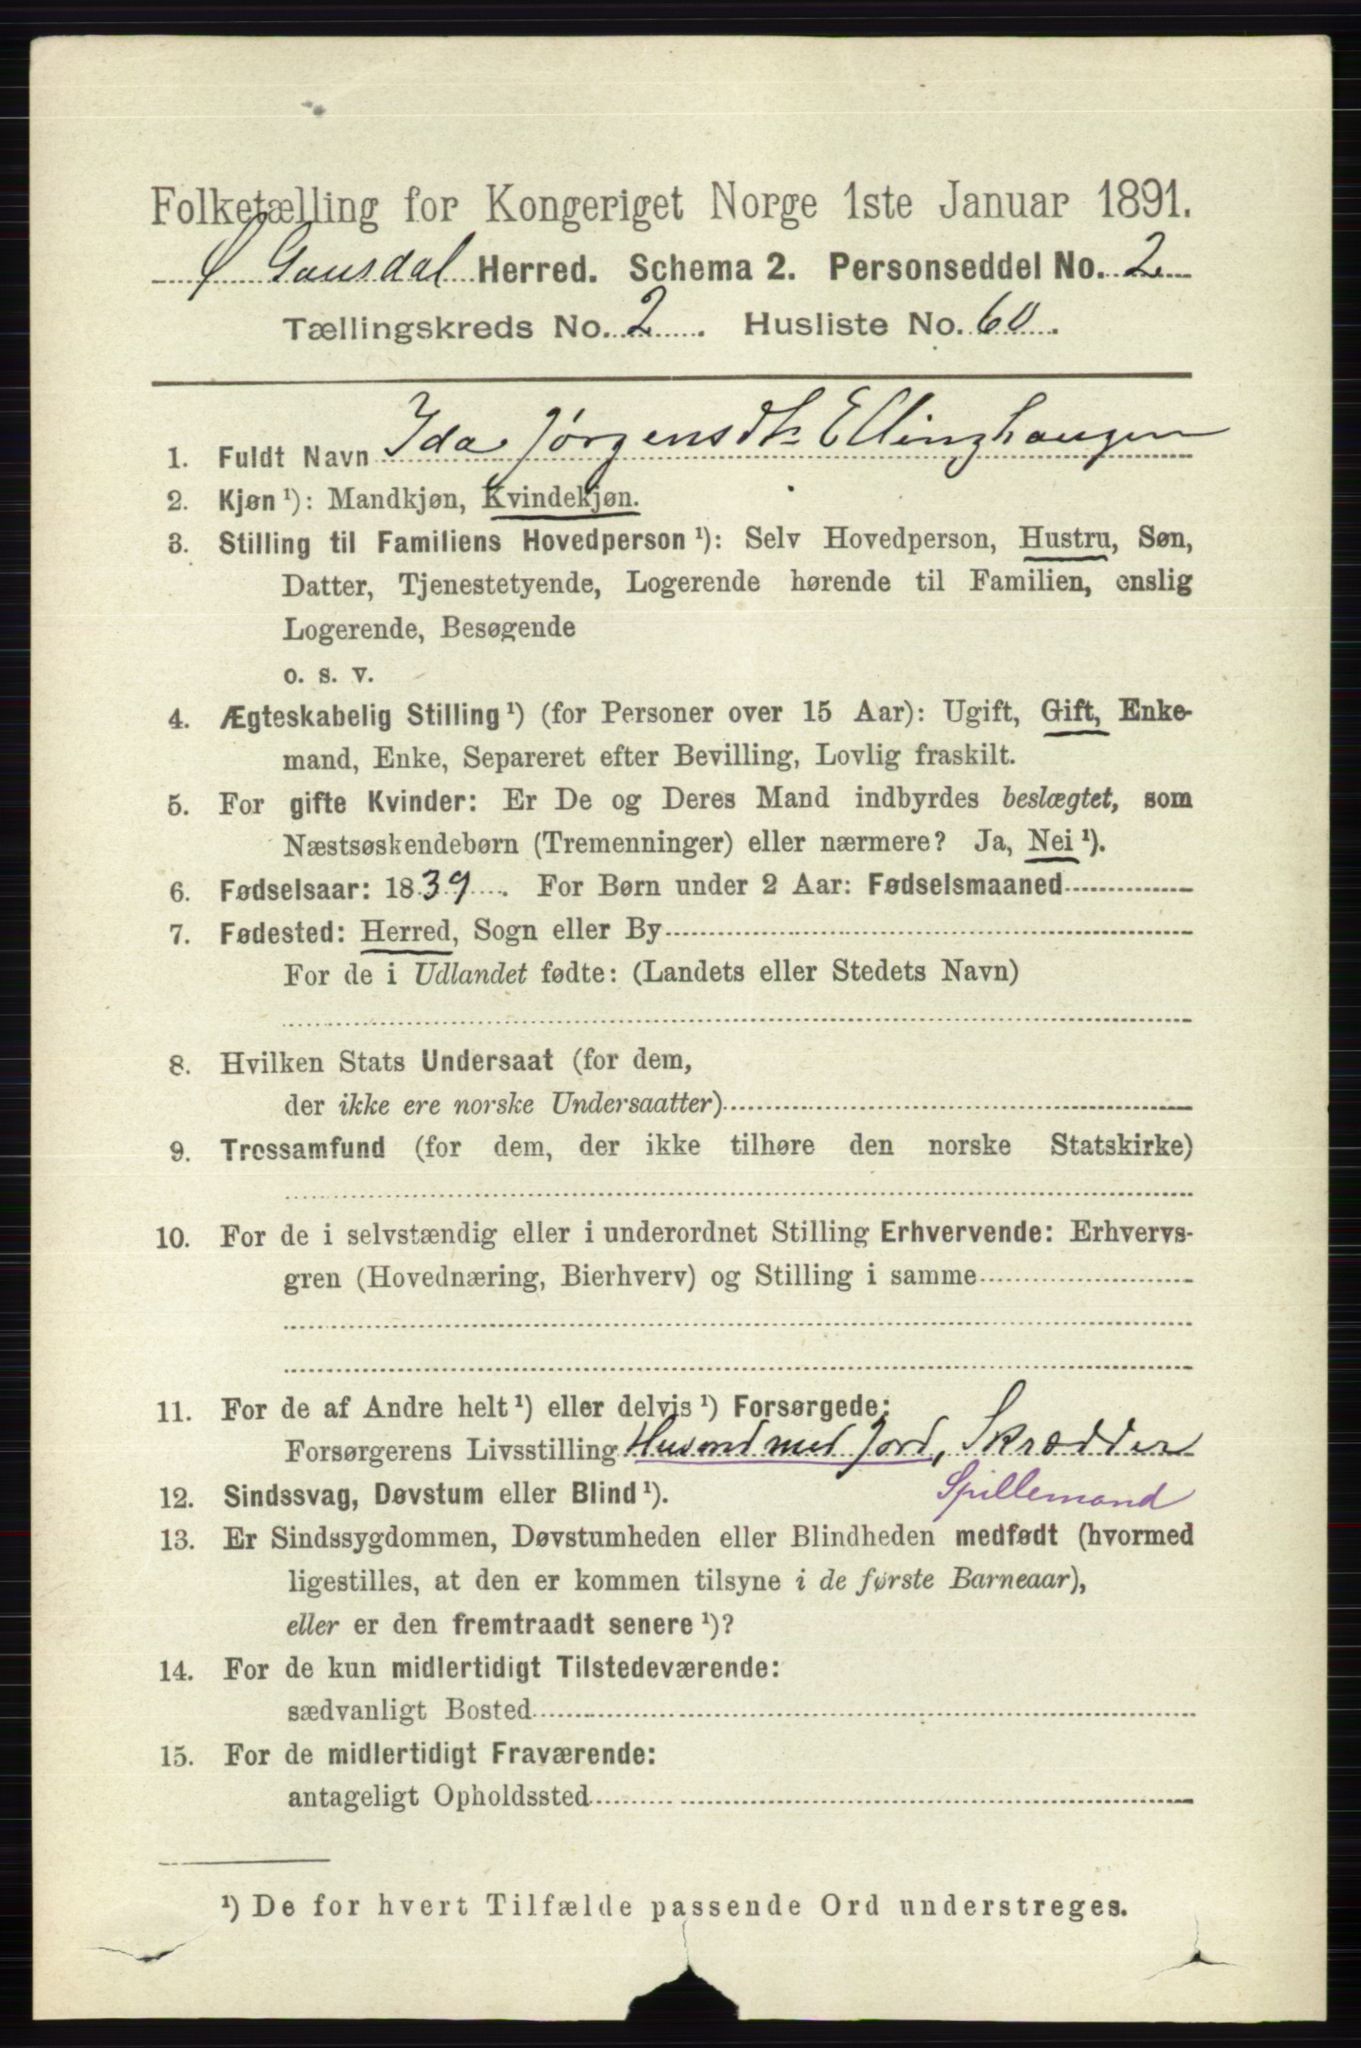 Folketælling for Kongeriget Norge 1ste Januar 1891.
Ø Gausdal Herred. Schema 2. Personseddel No. 2
Tællingskreds No. 2. Husliste No. 60.
1. Fuldt Navn Ida Jørgensdtr Ellinghaugen
2. Kjøn ¹): Mandkjøn, Kvindekjøn.
3. Stilling til Familiens Hovedperson ¹): Selv Hovedperson, Hustru, Søn,
Datter, Tjenestetyende, Logerende hørende til Familien, enslig
Logerende, Besøgende
o. s. v.
4. Ægteskabelig Stilling ¹) (for Personer over 15 Aar): Ugift, Gift, Enke-
mand, Enke, Separeret efter Bevilling, Lovlig fraskilt.
5. For gifte Kvinder: Er De og Deres Mand indbyrdes beslægtet, som
Næstsøskendebørn (Tremenninger) eller nærmere? Ja, Nei ¹).
6. Fødselsaar: 1839. For Børn under 2 Aar: Fødselsmaaned
7. Fødested: Herred, Sogn eller By
For de i Udlandet fødte: (Landets eller Stedets Navn)
8. Hvilken Stats Undersaat (for dem,
der ikke ere norske Undersaatter)
9. Trossamfund (for dem, der ikke tilhøre den norske Statskirke)
10. For de i selvstændig eller i underordnet Stilling Erhvervende: Erhvervs-
gren (Hovednæring, Bierhverv) og Stilling i samme
11. For de af Andre helt ¹) eller delvis ¹) Forsørgede:
Forsørgerens Livsstilling Husmd med Jord, Skrædder
Spillemand
12. Sindssvag, Døvstum eller Blind ¹).
13. Er Sindssygdommen, Døvstumheden eller Blindheden medfødt (hvormed
ligestilles, at den er kommen tilsyne i de første Barneaar),
eller er den fremtraadt senere ¹)?
14. For de kun midlertidigt Tilstedeværende:
sædvanligt Bosted
15. For de midlertidigt Fraværende:
antageligt Opholdssted
¹) De for hvert Tilfælde passende Ord understreges.